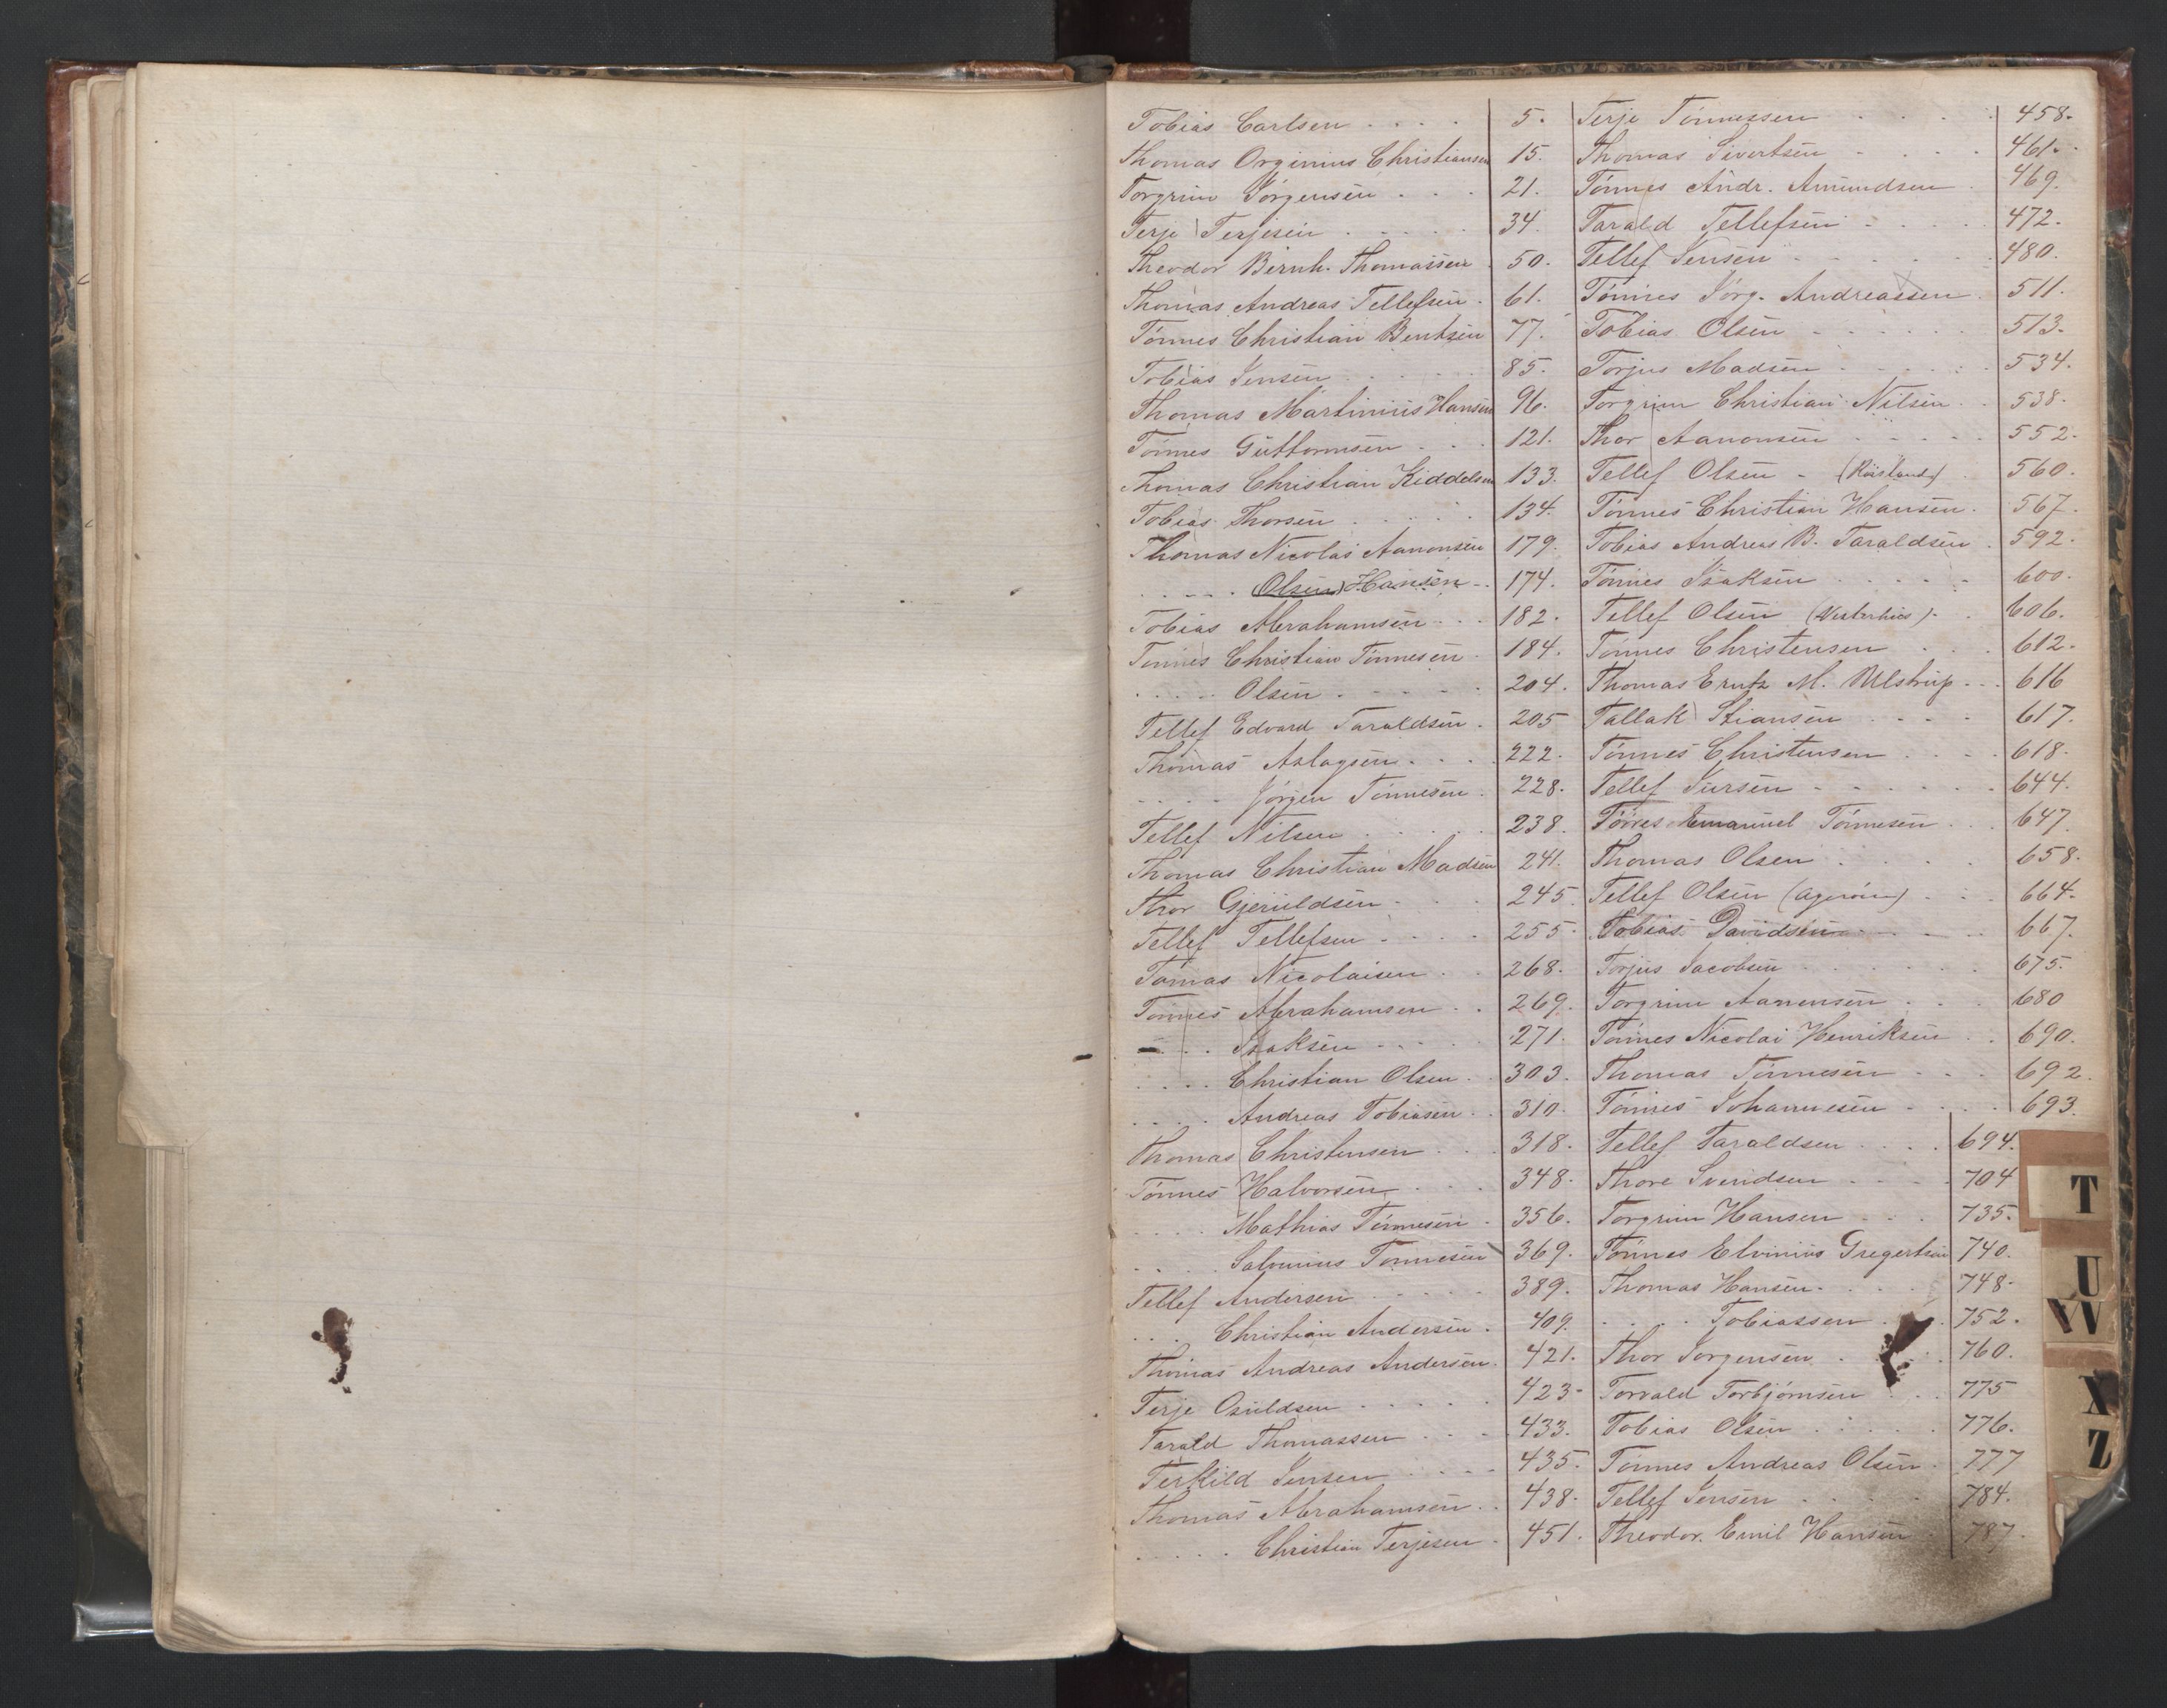 Tobias Carlsen . . . . 5.
Thomas Orginius Christiansen 15.
Torgrim Jørgensen . . . 21.
Terje Terjesen . . . . . 34.
Theodor Bernh. Thomassen . 50.
Thomas Andreas Tellefsen . 61.
Tønnes Christian Bentsen 77.
Tobias Jensen . . . . . 85.
Thomas Martinius Hansen 96.
Tønnes Guttormsen . . . 121.
Thomas Christian Kiddelsen 133.
Tobias Thorsen . . . . . 134.
Thomas Nicolai Aanonsen 179.
. . . . . (Olsen) Hansen . . 174.
Tobias Abrahamsen . . . 182.
Tønnes Christian Tønnesen . 184.
. . . . . Olsen . . . . . 204.
Tellef Edvard Taraldsen . 205
Thomas Aslagsen . . . . 222.
. . . . Jørgen Tønnesen . 228.
Tellef Nilsen . . . . . 238.
Thomas Christian Madsen 241.
Thor Gjeruldsen . . . . 245.
Tellef Tellefsen . . . . 255.
Tomas Nicolaisen . . . 268.
Tønnes Abrahamsen . . 269.
. . . Isaksen . . . . . 271.
. . . . Christian Olsen . . 303.
. . . . Andreas Tobiasen . . 310.
Thomas Christensen . . . 318.
Tønnes Halvorsen . . . 348.
. . . . Mathias Tønnesen . 356.
. . . . Salvinius Tønnesen 369.
Tellef Andersen . . . . . 389.
. . . Christian Andersen . 409.
Thomas Andreas Andersen . 421.
Terje Osuldsen . . . . . 423.
Tarald Thomassen . . . . 433.
Terkild Jensen . . . . 435.
Thomas Abrahamsen . . 438.
. . . . . Christian Terjesen . 451.
Terje Tønnessen . . . . 458.
Thomas Sivertsen . . . . 461.
Tønnes Andr. Amundsen . 469.
Tarald Tellefsen . . . . 472.
Tellef Jensen . . . . . . 480.
Tønnes Jørg. Andreassen . 511.
Tobias Olsen . . . . . . 513.
Torjus Madsen . . . . . 534.
Torgrim Christian Nilsen . . 538.
Thor Aanonsen . . . . . 552.
Tellef Olsen - . 560.
Tønnes Christian Hansen . 567.
Tobias Andreas B. Taraldsen . 592.
Tønnes Isaksen . . . . . 600.
Tellef Olsen (Vesterhus) . . 606.
Tønnes Christensen . . . 612.
Thomas Erutz M. Ulstrup . . . 616
Tallak Stiansen . . . . 617.
Tønnes Christensen . . . 618.
Tellef Iursen . . . . . . 644.
Tønnes Emanuel Tønnesen . . 647.
Thomas Olsen . . . . . 658.
Tellef Olsen (Agerøen) . . . 664.
Tobias Davidsen . . . . 667.
Torjus Jacobsen . . . . . 675.
Torgrim Aanensen . . . 680
Tønnes Nicolai Henriksen . . 690.
Thomas Tønnesen . . . 692.
Tønnes Johannesen . . . . 693.
Tellef Taraldsen . . . . 694.
Thore Svendsen . . . . 704
Torgrim Hansen . . . 735.
Tønnes Elvinius Gregertsen 740.
Thomas Hansen . . . . 748.
. . . . Tobiassen . . . 752.
Thor Jørgensen . . . . 760.
Torvald Torbjørnsen . . . 775
Tobias Olsen . . . . . 776.
Tønnes Andreas Olsen . 777
Tellef Jensen . . . . . 784.
Theodor Emil Hansen . 787.
T
U
VW
X
Z